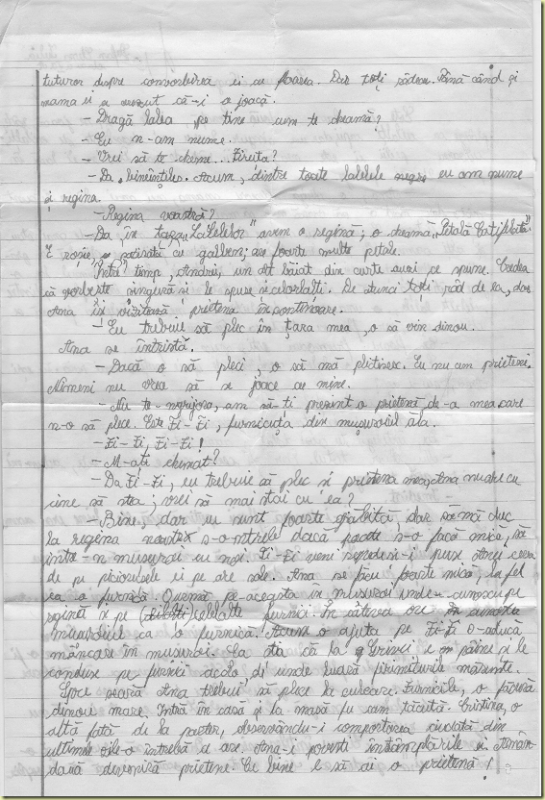 tuturor despre convorbirea ei cu floarea. Dar toți râdeau. Până când și
mama ei a crezut că-i o joacă.
- Dragă lalea pe tine cum te cheamă?
- Eu n-am nume.
- Vrei să te cheme... Firuța?
- Da, bineînțeles. Acum, dintre toate lalelele eu am nume
și regina.
- Regina voastră?
- Da, în țara „Lalelelor" avem o regină; o cheamă „Petală Catifelată"
E roșie, cu galben; are foarte multe petale.
Între timp, Andrei, un alt băiat din curte auzi ce spune. Credea
că vorbește singură și le spuse și celorlalți. De atunci toți râd de ea, dar
Ana își vizitează prietena în continuare.
- Eu trebuie să plec în țara mea, o să vin dinou.
Ana se întristă.
- Dacă o să pleci, o să mă plictisesc. Eu nu am prieteni.
Nimeni nu vrea să se joace cu mine.
- Nu te-ngrijora, am să-ți prezint o prietenă de-a mea care
n-o să plece. Este Zi-Zi, furnicuța din mușuroiul ăla.
- Zi-Zi, Zi-Zi!
- M-ați chemat?
- Da Zi-Zi, eu trebuie să plec și prietena mea, Ana nu are cu
cine să stea; vrei să mai stai cu ea?
- Bine, dar eu sunt foarte grăbită, dar să mă duc
la regina noastră s-o-ntreb dacă poate s-o facă mică, să
intre-n mușuroi cu noi. Zi-Zi veni repede și-i puse
de pe piciorușele ei pe ale sale. Ana se făcu foarte mică, la fel
ca o furnică. Urmă pe-aceasta în mușuroi unde- cunoscu pe
regină și pe celelalte furnici. În câteva ore
mușuroiul ca o furnică. Acum o ajuta pe Zi-Zi s-aducă
mâncare în mușuroi. Ea știa că la e pâine și le
conduse pe furnici acolo de unde luară firimiturile mărunte.
Spre seară Ana trebui să plece la culcare. Furnicile, o făcură
dinou mare. Intră în casă și la masă fu cam tăcută. Cristina, o
altă fată de la parter, observându-i comportarea ciudată din
ultimele zile-o întrebă ce are. Ana-i povesti întâmplările și amân-
două deveniră prietene. Ce bine e să ai o prietenă!